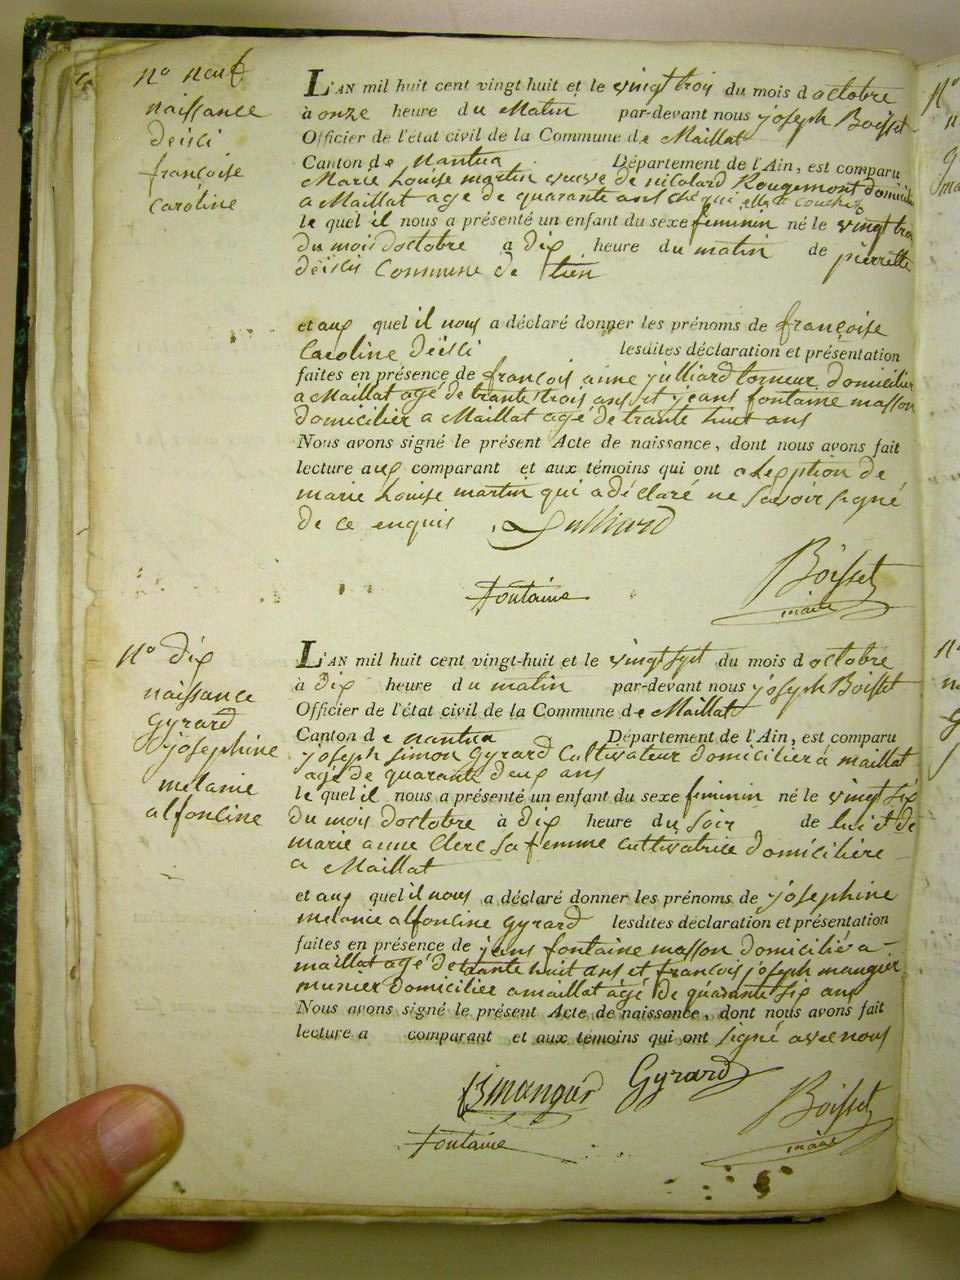 nº neuf
naissance
deïsci
françoise
Caroline
L'AN mil huit cent vingt huit et le vingt trois du mois d octobre
à onze heure du Matin par-devant nous joseph Boisset
Officier de l'état civil de la Commune de Maillat
Canton de Nantua Département de l'Ain, est comparu
Marie Louise martin veuve de nicolard Rougemont domicilié
a Maillat agé de quarante ans ché qui elle
le quel il nous a présenté un enfant du sexe feminin né le vingt troi
du mois doctobre a dix heure du matin de pierrette
deïsis Commune de
et aux quel il nous a déclaré donner les prénoms de françoise
Caroline Deïsci lesdites déclaration et présentation
faites en présence de françois anne julliard torneur domicilier
a Maillat agé de trante trois ans et jeans fontaine masson
domicilier a Maillat agé de trante huit ans
Nous avons signé le présent Acte de naissance, dont nous avons fait
lecture aux comparant et aux témoins qui ont a lexption de
marie Louise martin qui a déclaré ne savoir signé
de ce enquis Julliard
Fontaine
Boisset
maire
nº dix
naissance
Gyrard
josephine
melanie
alfonline
L'AN mil huit cent vingt-huit et le vingt sept du mois d octobre
à Dix heure du matin par-devant nous joseph Boisset
Officier de l'état civil de la Commune de Maillat
Canton de nantua Département de l'Ain, est comparu
joseph simon Gyrard Cultivateur domicilier à maillat
agé de quarante deux ans
le quel il nous a présenté un enfant du sexe feminin né le vingt six
du mois doctobre à dix heure du soir de lui et de
marie anne Clerc sa femme cultivatrice domicilière
a Maillat
et aux quel il nous a déclaré donner les prénoms de josephine
melanie alfonline Gyrard lesdites déclaration et présentation
faites en présence de jeans fontaine masson domicilié a
maillat agé de trante huit ans et françois joseph maugier
munier domicilier a maillat agé de quarante six ans
Nous avons signé le présent Acte de naissance, dont nous avons fait
lecture a comparant et aux témoins qui ont signé avec nous
Gyrard
Boisset
Fontaine
maire